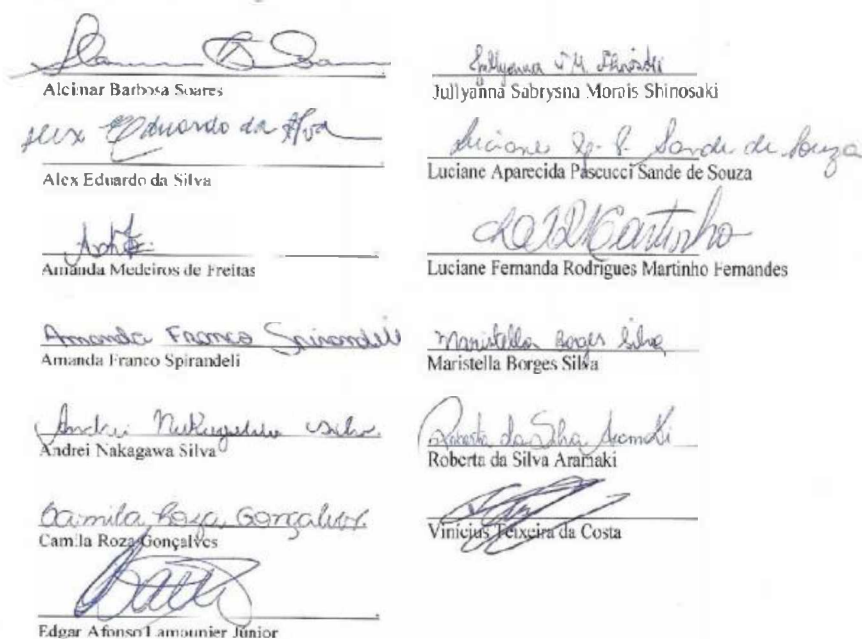 Alcimar Barbosa Soares
Alex Eduardo da Silva
Alex Eduardo da Silva
Amanda Medeiros de Freitas
Amanda Franco Spirandeli
Amanda Franco Spirandeli
Andrei Nakagawa Silva
Andrei Nakagawa Silva
Camila Roza Gonçalves
Camila Roza Gonçalves
Edgar Afonso Lamounier Júnior
Jullyanna Sabrysna Morais Shinosaki
Luciane Ap. P. Sande de Souza
Luciane Aparecida Pascucci Sande de Souza
Luciane Fernanda Rodrigues Martinho Fernandes
Maristella Borges Silva
Maristella Borges Silva
Roberta da Silva Aramaki
Roberta da Silva Aramaki
Vinicius Teixeira da Costa